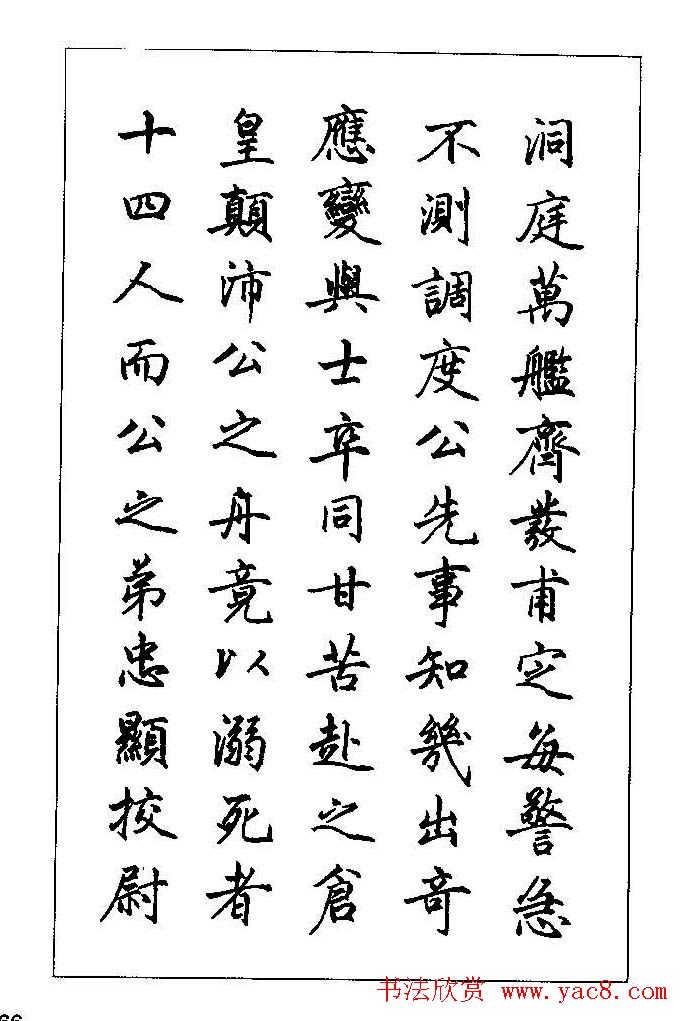 洞庭萬艦齊發甫定每警急
不測調度公先事知幾出奇
應變與士卒同甘苦赴之倉
皇顛沛公之舟竟以溺死者
十四人而公之弟忠顯挍尉
书法欣赏 www.yac8.com
66